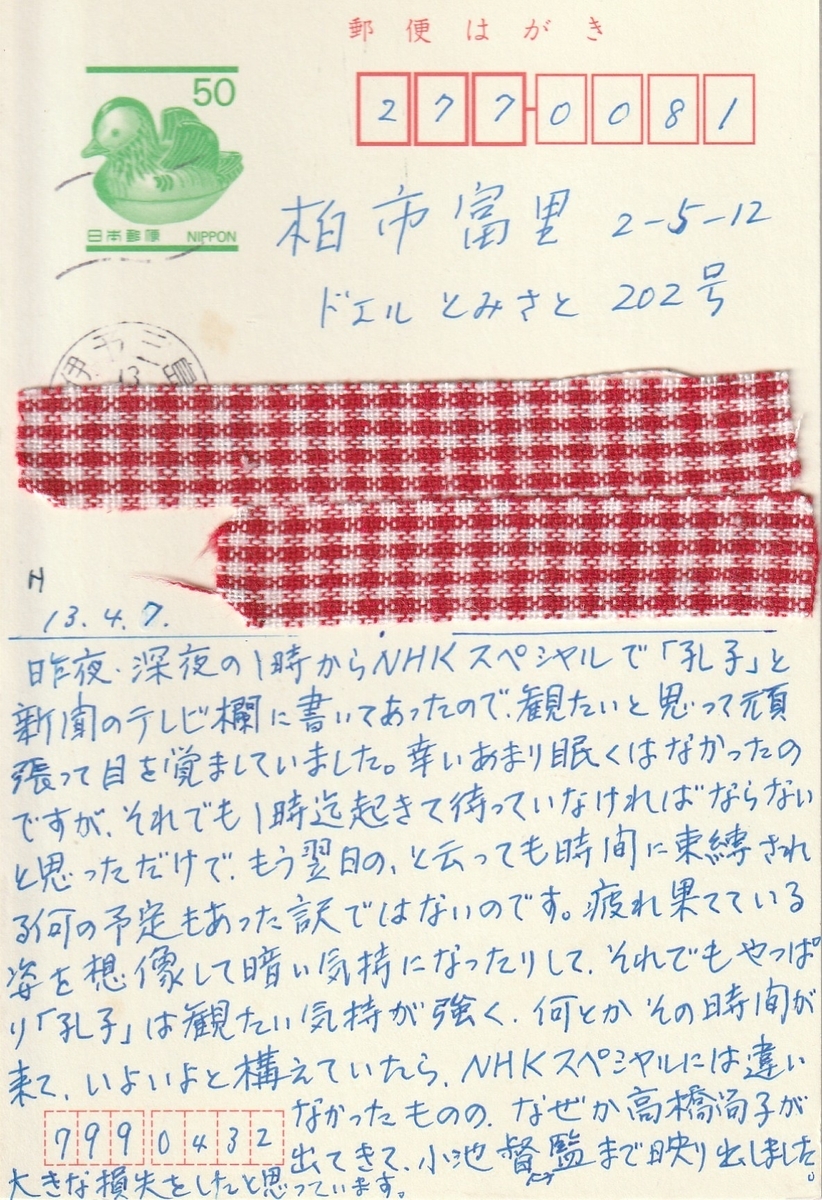 郵便はがき
50
日本郵便 NIPPON
277-0081
柏市富里 2-5-12
ドエルとみさと 202号
伊予三島
13
H
13.4.7.
昨夜・深夜の1時からNHKスペシャルで「孔子」と
新聞のテレビ欄に書いてあったので、観たいと思って頑
張って目を覚ましていました。幸いあまり眠くはなかったの
ですが、それでも1時迄起きて待っていなければならない
と思っただけで、もう翌日の、と云っても時間に束縛され
る何の予定もあった訳ではないのです。疲れ果てている
姿を想像して暗い気持になったりして、それでもやっぱ
り「孔子」は観たい気持が強く、何とかその時間が
来て、いよいよと構えていたら、NHKスペシャルには違い
なかったものの、なぜか高橋尚子が
出てきて、小池督監まで映り出しました。
大きな損失をしたと思っています。
7990432